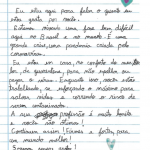 Eu vim aqui para falar o quanto eu
sou grato por vocês.
Estamos vivendo uma fase bem difícil
aqui no Brasil e no mundo. É uma
grande crise, uma pandemia criada pelo
coronavírus.
Eu estou em casa, no conforto da minha
de quarentena, para não espalhar e
pegar o vírus. Enquanto isso vocês estão
trabalhando, se esforçando ao máximo para
salvar vidas e correndo o risco de
serem contaminados.
A sua profissão é muito bonita
e vocês são
Continuem assim! Firmes e fortes para
um mundo melhor!